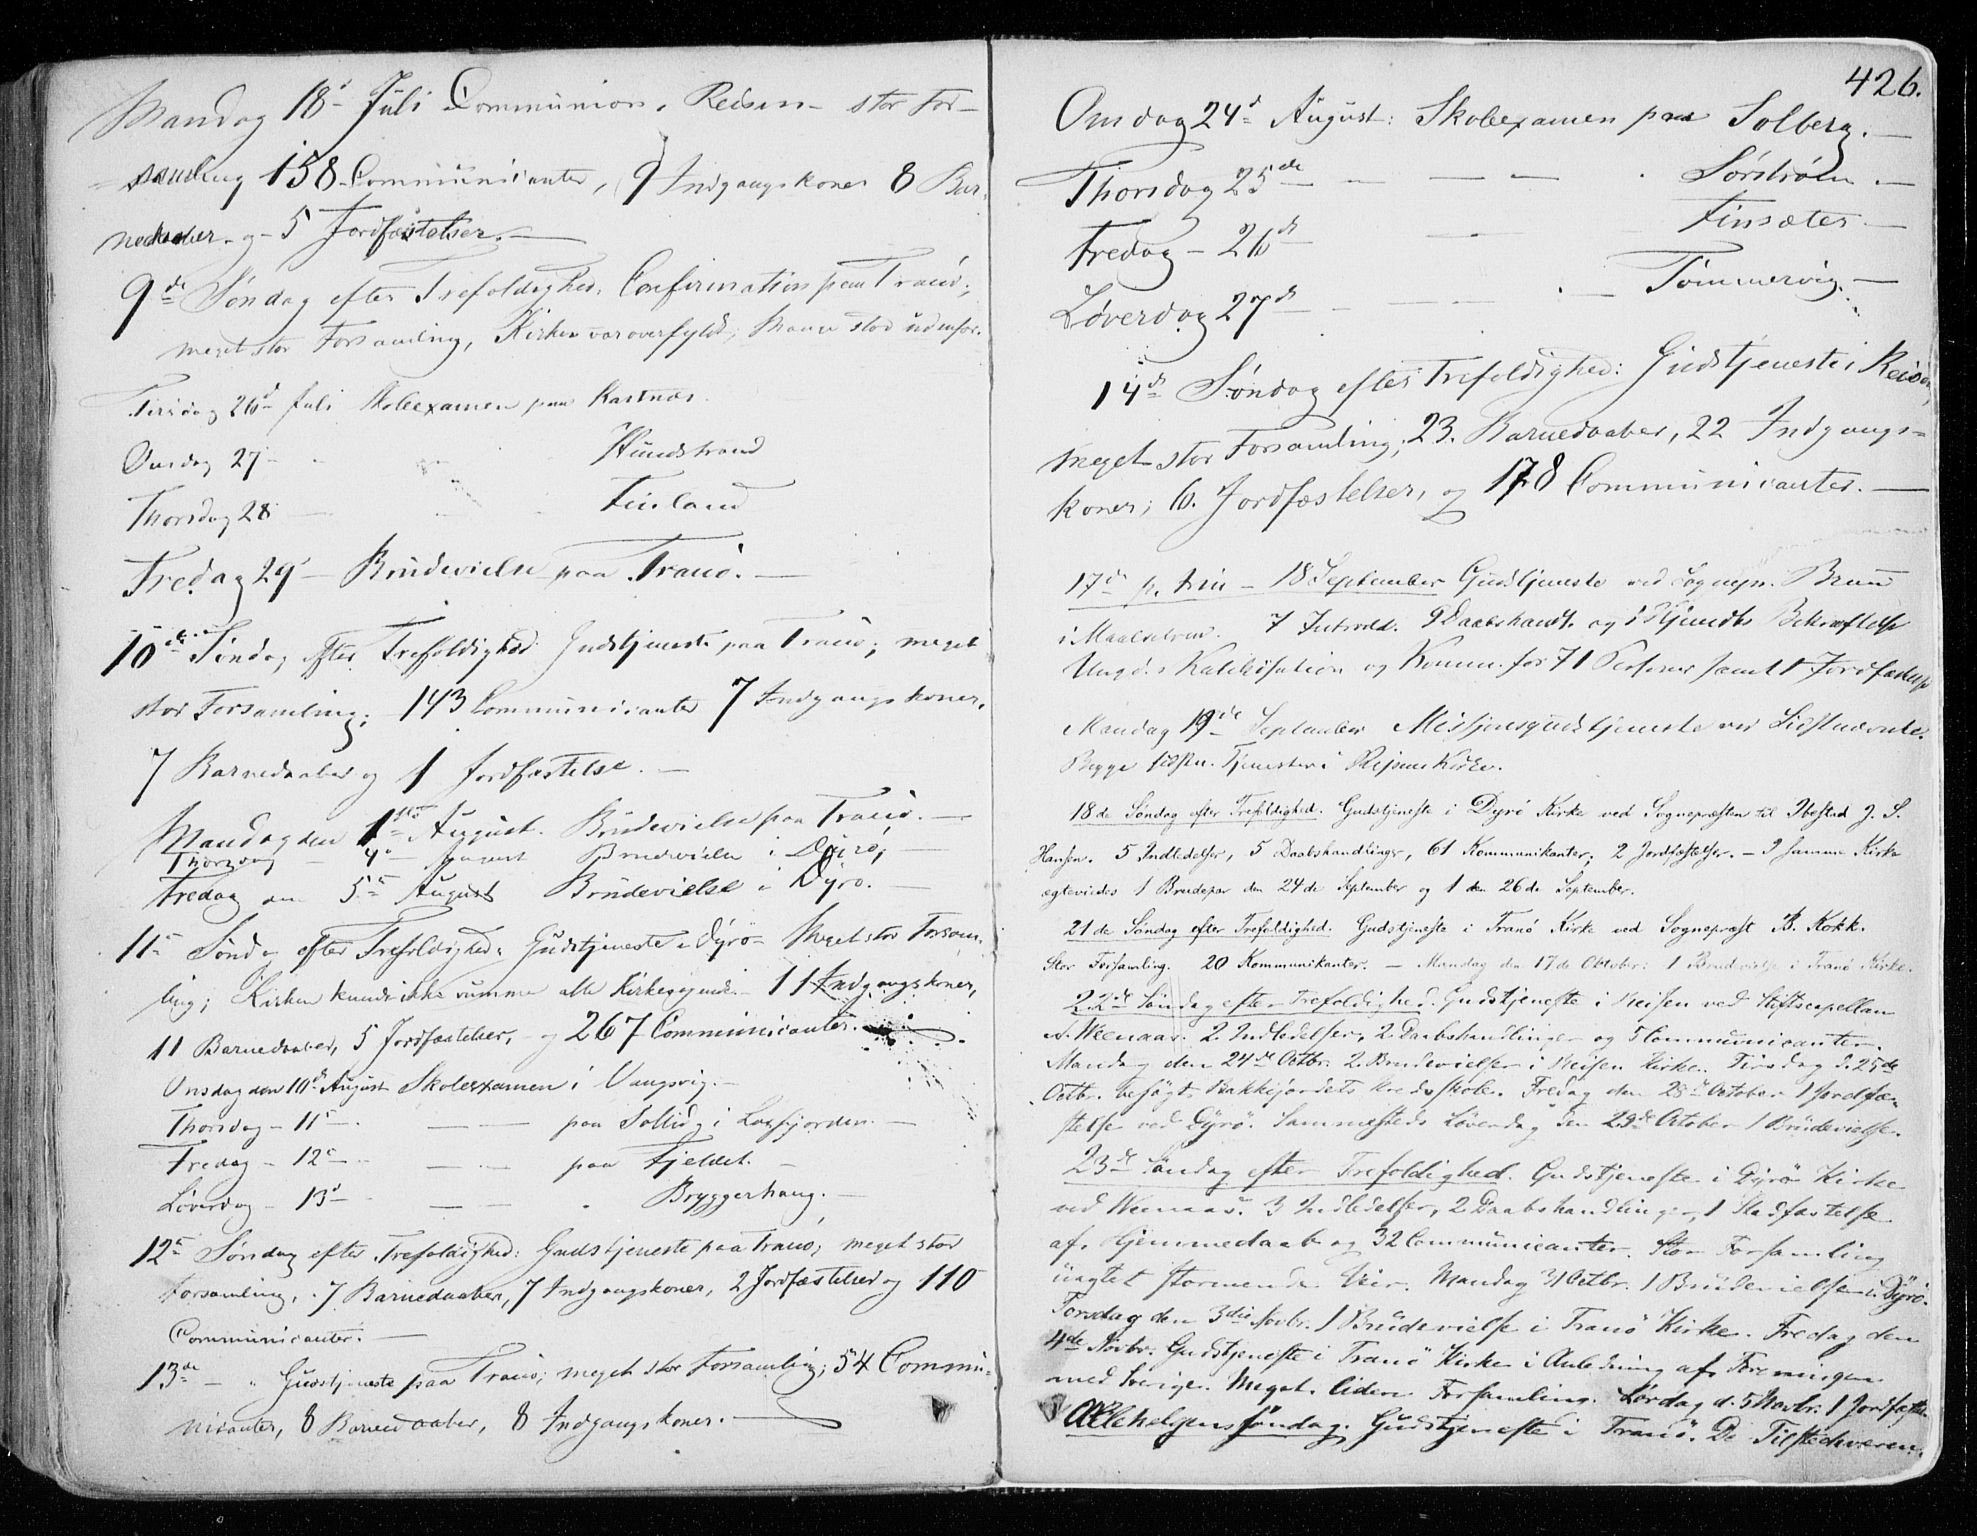 Mandag 18d Juli Communion i Reisen - stor For-
samling 158 Communicanter, 9 Indgangskoner 8 Bar-
nedaaber - og - 5 Jordfæstelser. -
9de Søndag efter Trefoldighed. Confirmation paa Tranø;
meget stor Forsamling, Kirken var overfyldt; Mange stod udenfor.
Tirsdag 26d Juli Skoleexamen paa Kastnæs.
Onsdag 27 - Hundstrand
Thorsdag 28 - Finland
Fredag 29 - Brudevielse paa Tranø. -
10de Søndag efter Trefoldighed Gudstjeneste paa Tranø; meget
stor Forsamling; 143 Communicanter 7 Indgangskoner,
7 Barnedaaber og 1 Jordfæstelse. -
Mandag den 1ste August. Brudevielse paa Tranø. -
Thorsdag - 4de August Brudevielse i Dyrø,
Fredag den 5te August Brudevielse i Dyrø. -
11te Søndag efter Trefoldighed: Gudstjeneste i Dyrø - Meget stor Forsam-
ling; Kirken kunde ikke rumme alle Kirkesøgende - 11 Indgangskoner,
11 Barnedaaber, 5 Jordfæstelser, og 267 Communicanter.
Onsdag den 10de August Skoleexamen i Vangsvig. -
Thorsdag - 11te - paa Sollid i Laxfjorden. -
Fredag - 12te - paa Fjeldet. -
Løverdag - 13d - Bryggerhaug. -
12te Søndag efter Trefoldighed: Gudstjeneste paa Tranø; meget stor
Forsamling, 7 Barnedaaber, 7 Indgangskoner, 2 Jordfæstelser og 110
Communicanter. -
13de - " Gudstjeneste paa Tranø; meget stor Forsamling; 54 Commu-
nicanter, 8 Barnedaaber, 8 Indgangskoner. -
426.
Onsdag 24d August: Skoleexamen paa Solberg. -
Thorsdag 25de - Sørstrøm -
Fredag - 26d - Finsæter -
Løverdag 27d - Tømmervig. -
14de Søndag efter Trefoldighed: Gudstjeneste i Reisen,
meget stor Forsamling, 23. Barnedaaber, 22 Indgangs-
koner; 6. Jordfæstelser, og 178 Communicanter. -
17de p. trin - 18 September Gudstjeneste ved Sognepr. Bruun
i Maalselven. 7 Introd. 9 Daabshandl. og 1 Hjemdbs Bekræftelse
Ungd.s Katekisation og Komm. for 71 Personer samt 1 Jordfæstelse
Mandag 19de September Missjonsgudstjeneste ved Sidstnævnte.
Begge sidstn. Tjenester i Reisens Kirke.
18de Søndag efter Trefoldighed. Gudstjeneste i Dyrø Kirke ved Sognepræsten til Ibestad J. S.
Hansen. 5 Indledelser, 5 Daabshandlinger, 61 Kommunikanter; 2 Jordfæstelser. - I samme Kirke
ægteviedes 1 Brudepar den 24de September og 1 den 26de September.
21de Søndag efter Trefoldighed. Gudstjeneste i Tranø Kirke ved Sognepræst B. Kokk.
Stor Forsamling. 20 Kommunikanter. - Mandag den 17de Oktober: 1 Brudevielse i Tranø Kirke.
22de Søndag efter Trefoldighed. Gudstjeneste i Reisen ved Stiftscapellan
A. Weenaas. 2 Indledelser, 2 Daabshandlinger og 5 Communicanter.
Mandag den 24de Octbr. 2 Brudevielser i Reisen Kirke. Tirsdag d. 25de
Octbr. besøgt Bakkejordets Kredsskole. Fredag den 28de October 1 Jordfæ-
stelse ved Dyrø. Sammesteds Løverdag den 29de October 1 Brudevielse.
23de Søndag efter Trefoldighed. Gudstjeneste i Dyrø Kirke
ved Weenaas. 3 Indledelser, 2 Daabshandlinger, 1 Stadfæstelse
af Hjemmedaab og 32 Communicanter. Stor Forsamling
uagtet stormende Veir. Mandag 31 Octbr. 1 Brudevielse i Dyrø.
Torsdag den 3die Novbr. 1 Brudevielse i Tranø Kirke. Fredag den
4de Novbr. Gudstjeneste i Tranø Kirke i Anledning af Foreningen
med Sverige. Meget liden Forsamling. Lørdag d. 5 Novbr. 1 Jordfæstelse
Allehelgenssøndag. Gudstjeneste i Tranø. De Tilstedeværen-